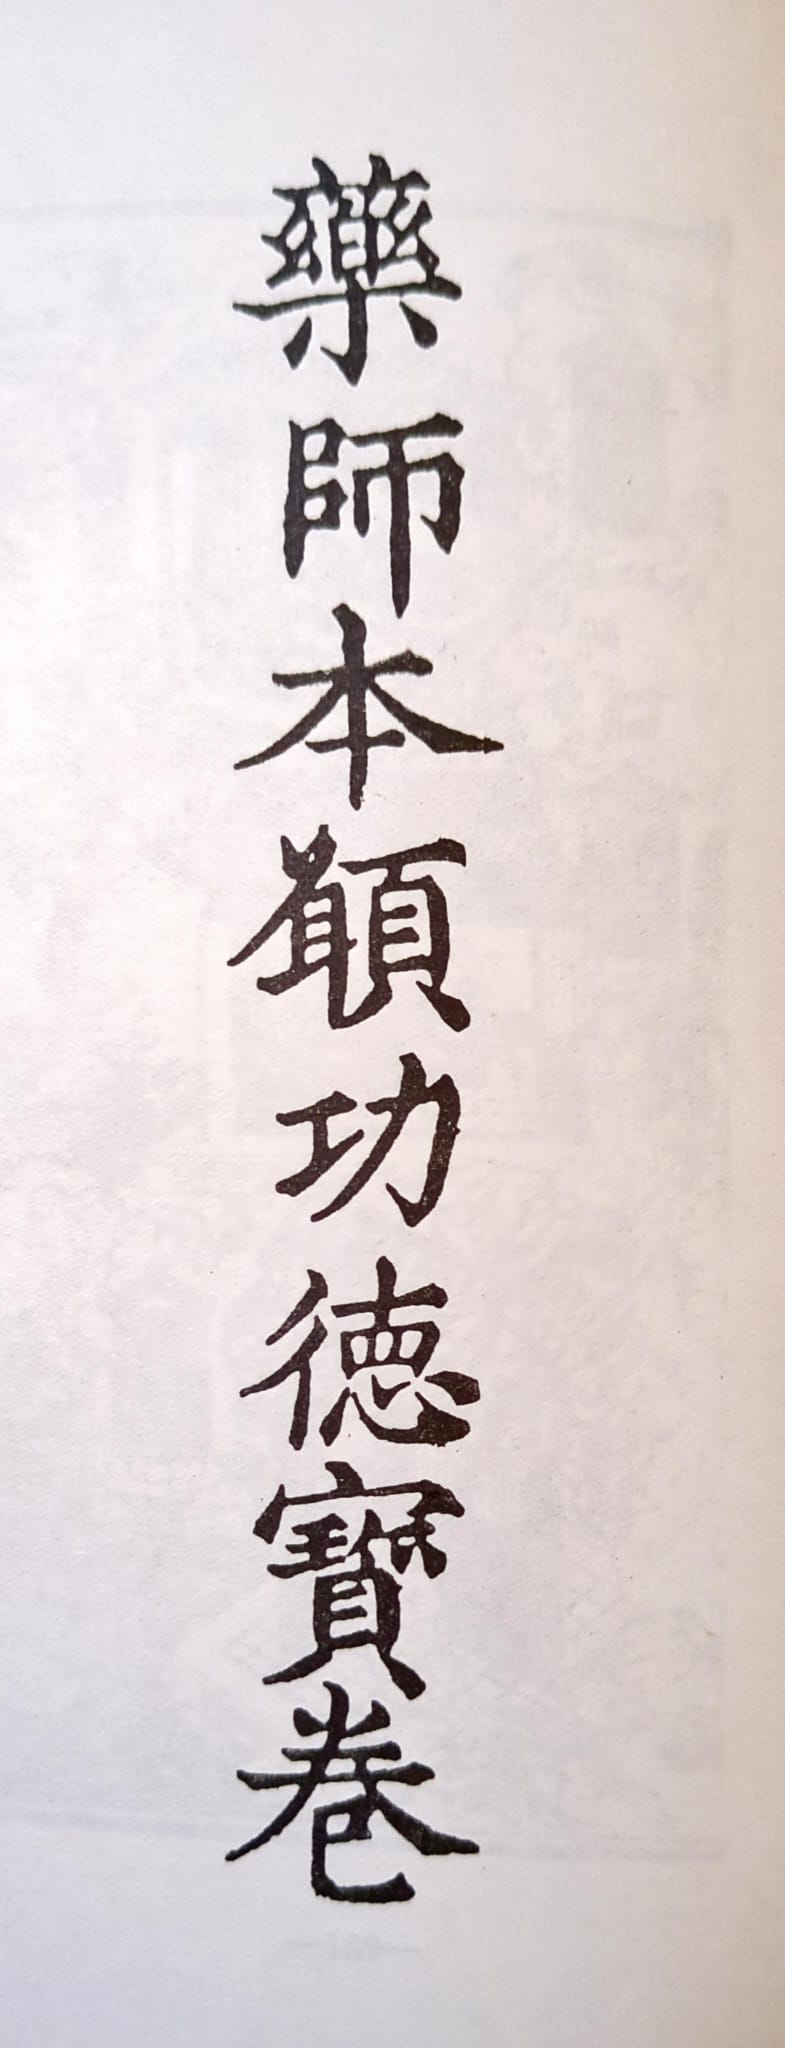 藥師本願功德寶卷